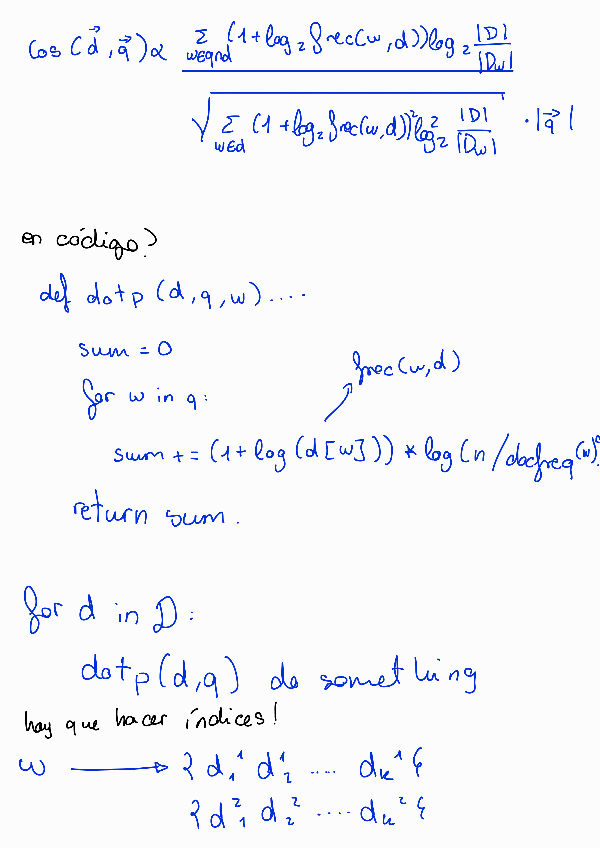 cos(d⃗, q⃗) ∝ Σ_{w∈q∩d} (1+log₂ frec(w,d)) log₂ |D|/|Dw|
√ Σ_{w∈d} (1+log₂ frec(w,d))² log₂² |D|/|Dw| · |q⃗|
en código?
def dotp (d, q, w) ....
sum = 0
frec(w,d)
for w in q:
sum += (1+log(d[w])) * log(n/docfreq(w)
return sum.
for d in D:
dotp(d,q) do something
hay que hacer índices!
w → { d₁¹ d₂¹ .... dₖ¹ }
{ d₁² d₂² .... dₖ² }